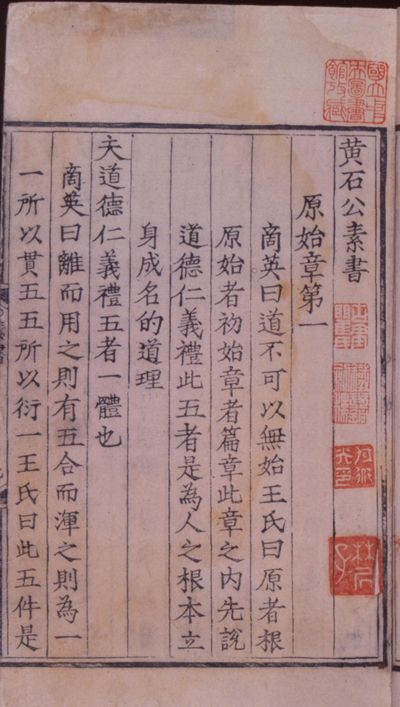 黄石公素書
原始章第一
商英曰道不可以無始王氏曰原者根
原始者初始章者篇章此章之内先說
道德仁義禮此五者是為人之根本立
身成名的道理
夫道德仁義禮五者一體也
商英曰離而用之則有五合而渾之則為一
一所以貫五五所以衍一王氏曰此五件是